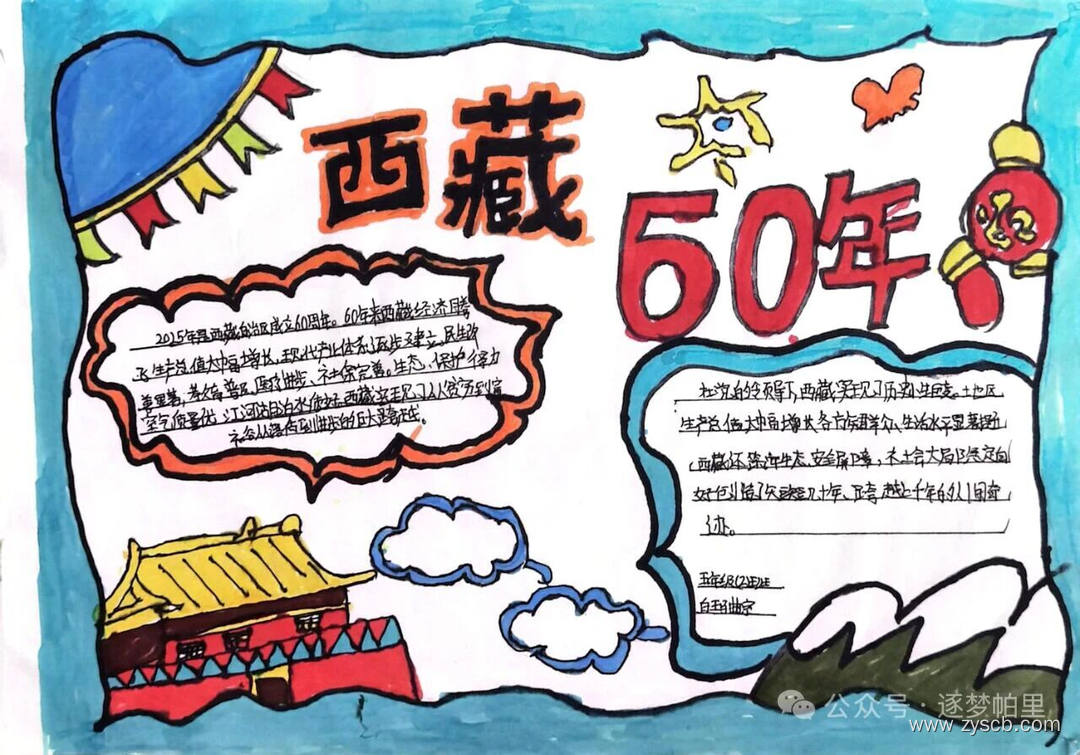 西藏
60年
2025年是西藏自治区成立60周年。60年来西藏经济腾
飞生产总值大幅增长,现代产业体系逐步建立。民生改
善显著,教育普及,医疗进步、社保完善。生态、保护得力
空气质量优,江河湖泊水质好。西藏实现了从贫穷到富
裕从落后到进步的巨大跨越。
的领导下,西藏实现了历史性巨变。地区
生产总值大幅增长各方族群众、生活水平显著提
西藏还 生态、安全屏障,社会大局 稳定向
好创造了 短短几十年、跨越上千年的人间奇
迹。
五年级(2)班
白玛曲宗
公众号·逐梦帕里
www.zyscb.com